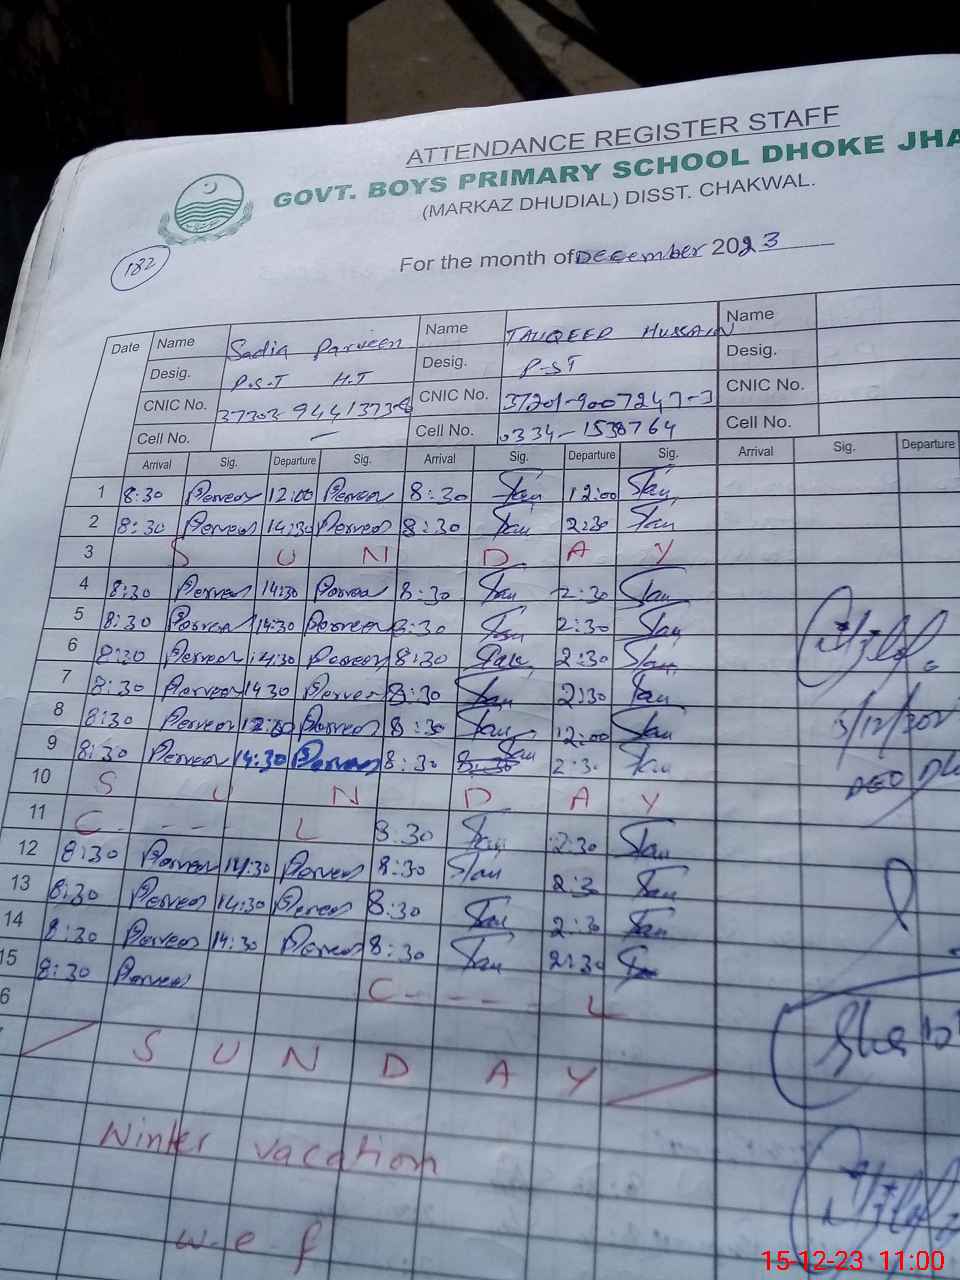 ATTENDANCE REGISTER STAFF
GOVT. BOYS PRIMARY SCHOOL DHOKE JHA
(MARKAZ DHUDIAL) DISST. CHAKWAL.
182
For the month of December 2023
Date Name Sadia Parveen Name TAUQEER HUSSAIN Name
Desig. P.S.T H.T Desig. P-ST Desig.
CNIC No. CNIC No. 37201-9007247-3 CNIC No.
Cell No. — Cell No. 0334-1538764 Cell No.
Arrival Sig. Departure Sig. Arrival Sig. Departure Sig. Arrival Sig. Departure
1 8:30 Perveen 12:00 Perveen 8:30 12:00
2 8:30 Perveen 14:30 Perveen 8:30 2:30
3 S U N D A Y
4 8:30 Perveen 14:30 Perveen 8:30 2:30
5 8:30 Perveen 14:30 Perveen 8:30 2:30
6 8:30 Perveen 14:30 Perveen 8:30 2:30
7 8:30 Perveen 14 30 Perveen 8:30 2:30
8 8:30 Perveen 12:00 Perveen 8:30 12:00
9 8:30 Perveen 14:30 Perveen 8:30 2:30
10 S U N D A Y
11 C - - - L 8:30 2:30
12 8:30 Perveen 14:30 Perveen 8:30 2:3
13 8:30 Perveen 14:30 Perveen 8:30 2:30
14 8:30 Perveen 14:30 Perveen 8:30 2:30
15 8:30 Perveen C - - - - L
6
S U N D A Y
Winter vacation
w.e f
15-12-23 11:00